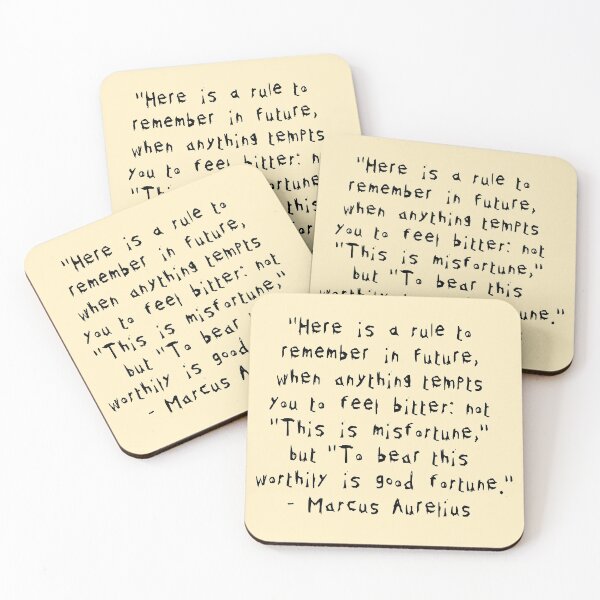 "Here is a rule to
remember in future,
when anything tempts
you to feel bitter:
"This
this
"Here is a rule to
remember in future,
when anything tempts
you to feel bitter: not
"This is misfortune,"
but "To bear this
worthily
"Here is a rule to
remember in future,
when anything tempts
you to feel bitter: not
"This is misfortune,"
but "To bear
worthily is good
- Marcus
"Here is a rule to
remember in future,
when anything tempts
you to feel bitter: not
"This is misfortune,"
but "To bear this
worthily is good fortune."
- Marcus Aurelius